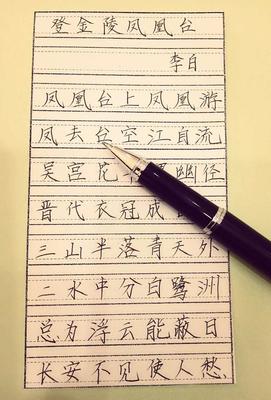 登金陵凤凰台
李白
凤凰台上凤凰游
凤去台空江自流
吴宫花幽径
晋代衣冠成
三山半落青天外
二水中分白鹭洲
总为浮云能蔽日
长安不见使人愁